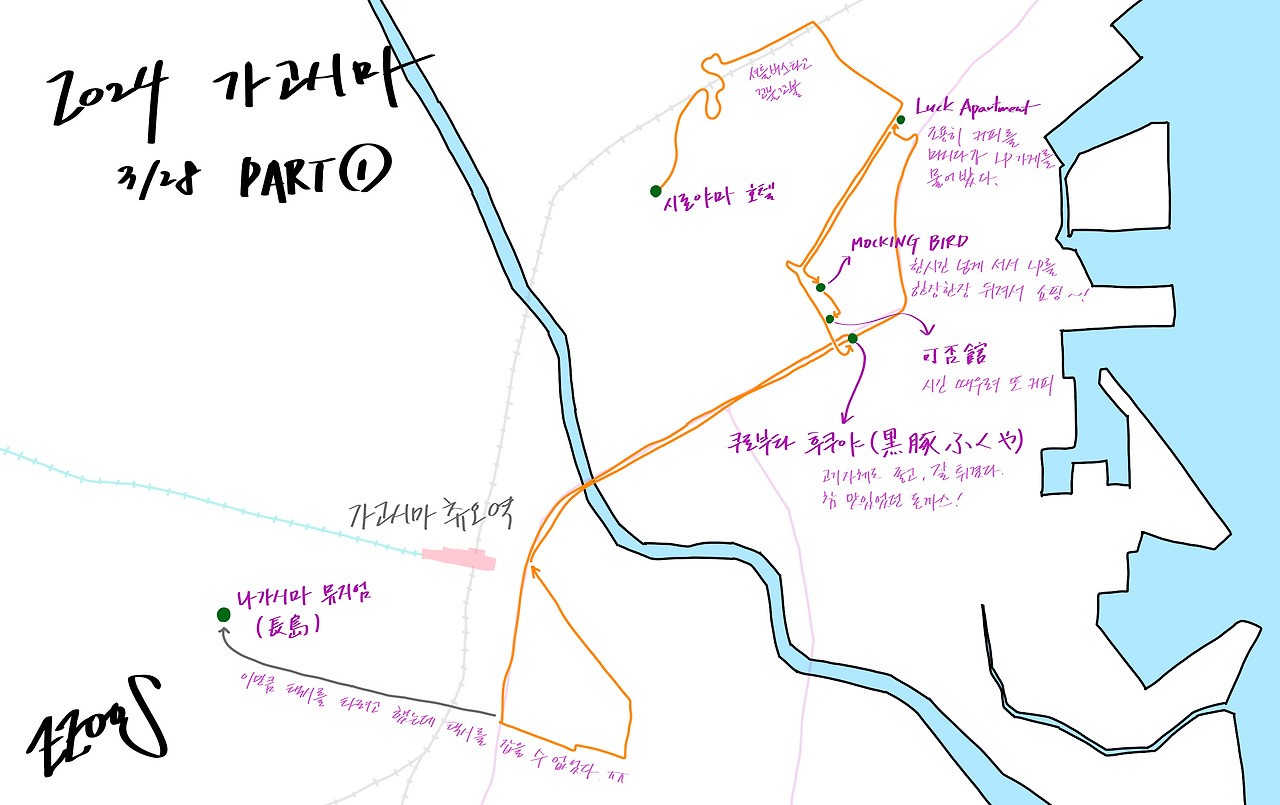 2024 가고시마
3/28 PART ①
셔틀버스타고
꼬불꼬불
Luck Apartment
조용히 커피를
마시다가 LP가게를
물어봤다.
시로야마 호텔
MOCKING BIRD
한시간 넘게 서서 LP를
한장한장 뒤져서 쇼핑~!
可否館
시간 때우러 또 커피
쿠로부타 후쿠야(黒豚ふくや)
고기자체도 좋고, 잘 튀겼다.
참 맛있었던 돈까스!
가고시마 츄오역
나가시마 뮤지엄
(長島)
이만큼 택시를 타려고 했는데 택시를 잡을 수 없었다. ㅠㅠ